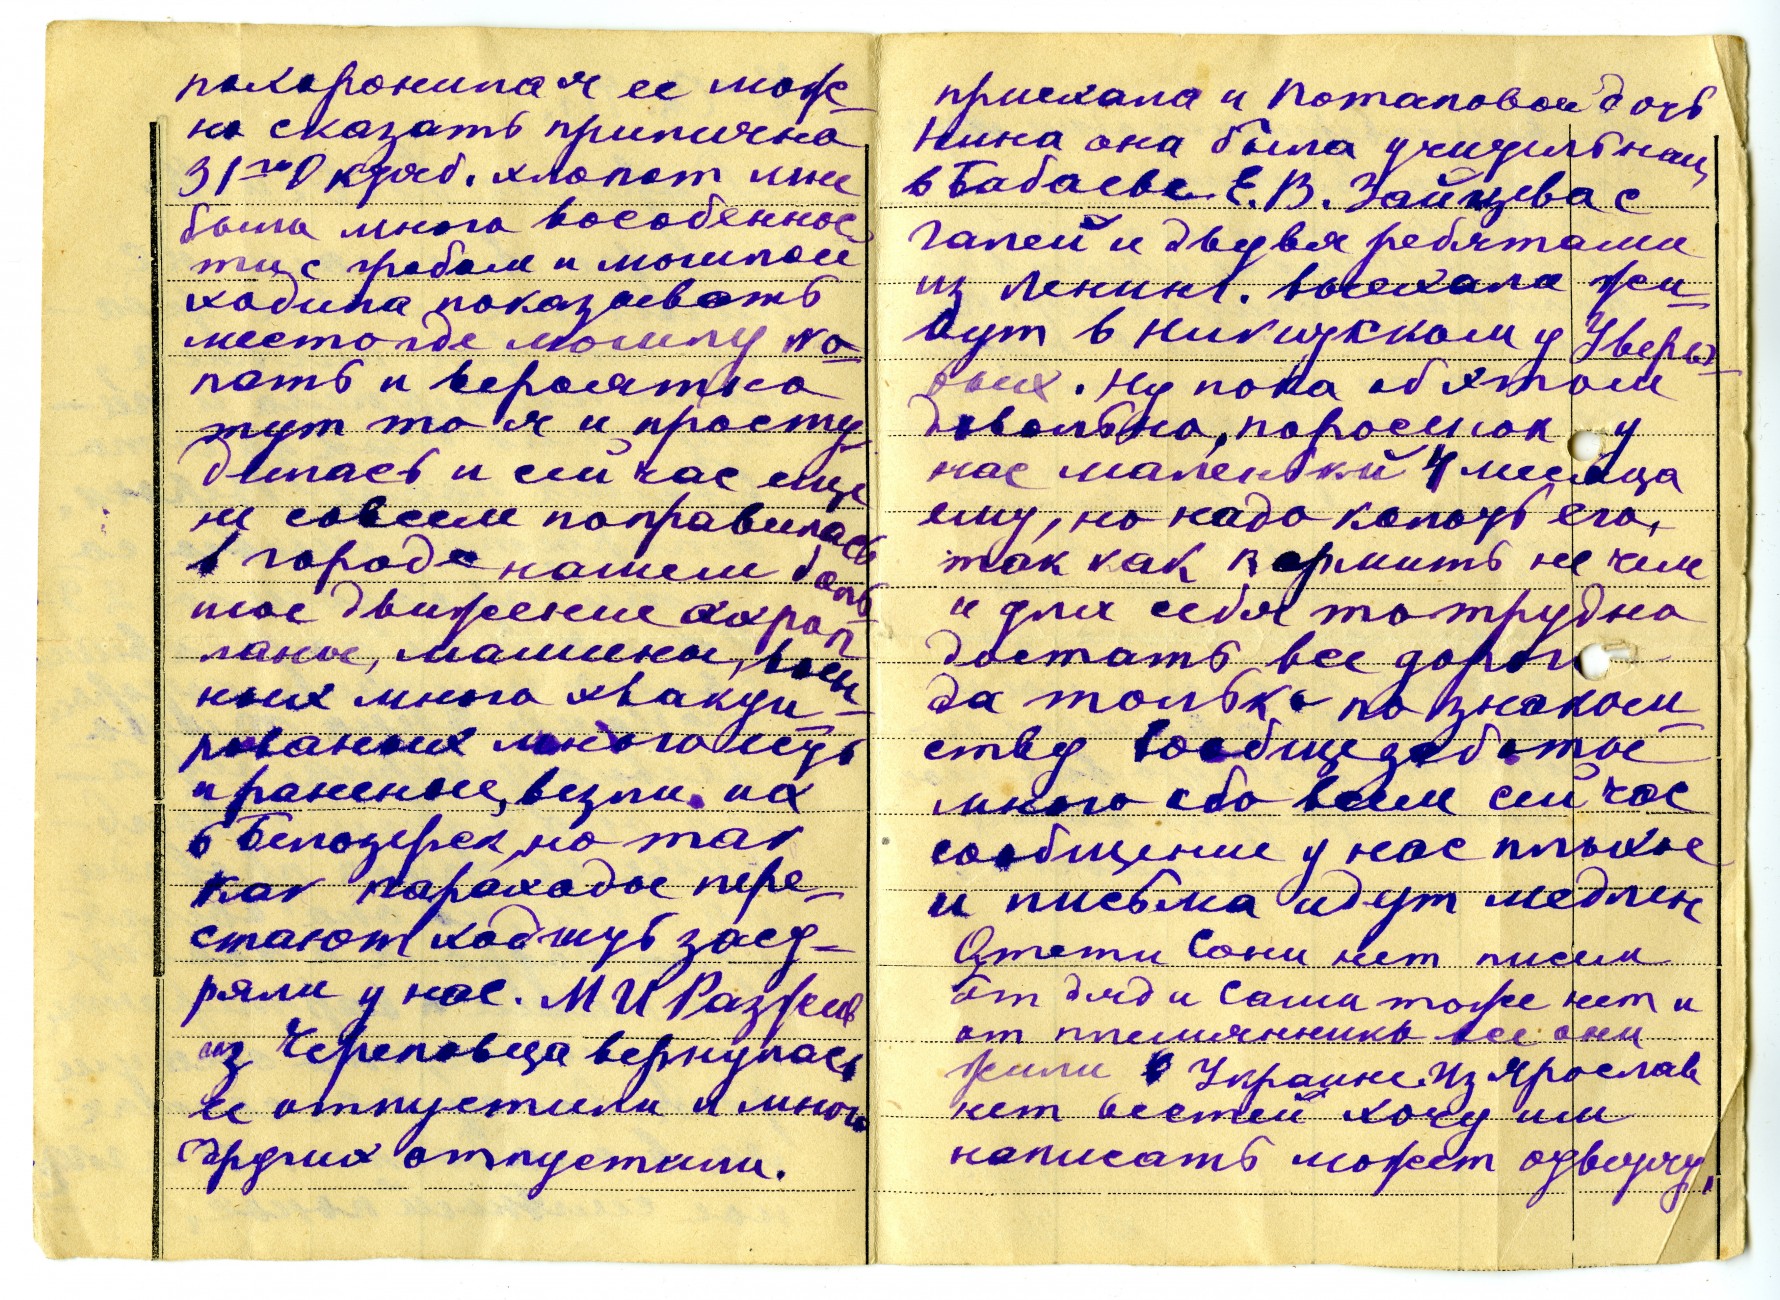 похоронила я ее мож
но сказать прилична
31го Октяб. хлопот мне
была много вособеннос
ти с гробом и могилой
ходила показоевать
место где могилу ко-
пать и вероятно
тут то я и просту
дилась и сейчас еще
не совсем поправилась
в городе нашем боль
шое движение аэроп
ланы, машины, воен
ных много эвакуи-
рованных много есть
и раненые, везли их
в Белозерск, но так
как параходы пере-
стают ходить засд-
ряли у нас. М И Разжив
из Череповца вернулась
ее отпустили и много
других отпустили.
приехала и Потаповой дочь
Нина она была учительниц
в Бабаеве. Е. В. Зайцева с
Галей и двумя ребятами
из Ленинг. выехала жи-
вут в Никитском у Уверы-
вых. Ну пока об этом
довольно, поросенок у
нас маленький 4 месяца
ему, но надо колоть его,
так как кормить не чем
и для себя то трудно
достать все дорого
да только по знаком-
ству вообще заботы
много обо всем сейчас
сообщение у нас плохое
и письма идут медлен
От тети Сони нет писем
от дяди Саши тоже нет и
от племянника все они
жили в Украине. Из Ярослав
нет вестей хочу им
написать может